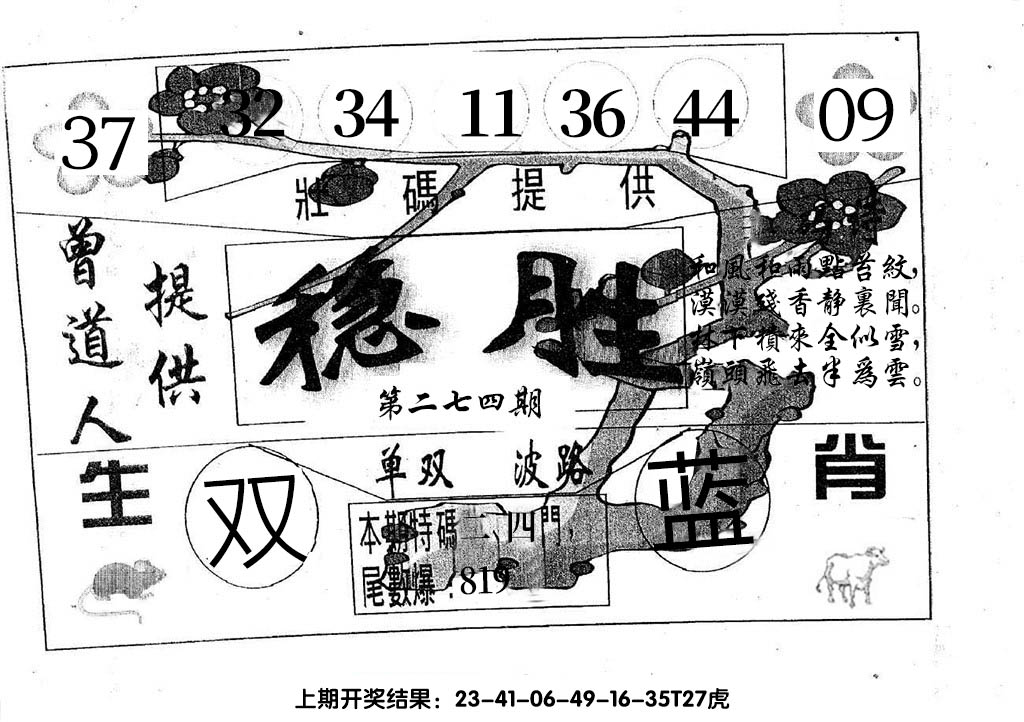 37 32 34 11 36 44 09
壯碼提供
曾道人
提供
稳胜
第二七四期
和風和雨點苔紋，
漠漠殘香静裏聞。
林下積來全似雪，
嶺頭飛去半爲雲。
生肖
单双 波路
双 蓝
本期特碼二、四門，
尾數爆：819
上期开奖结果：23-41-06-49-16-35T27虎